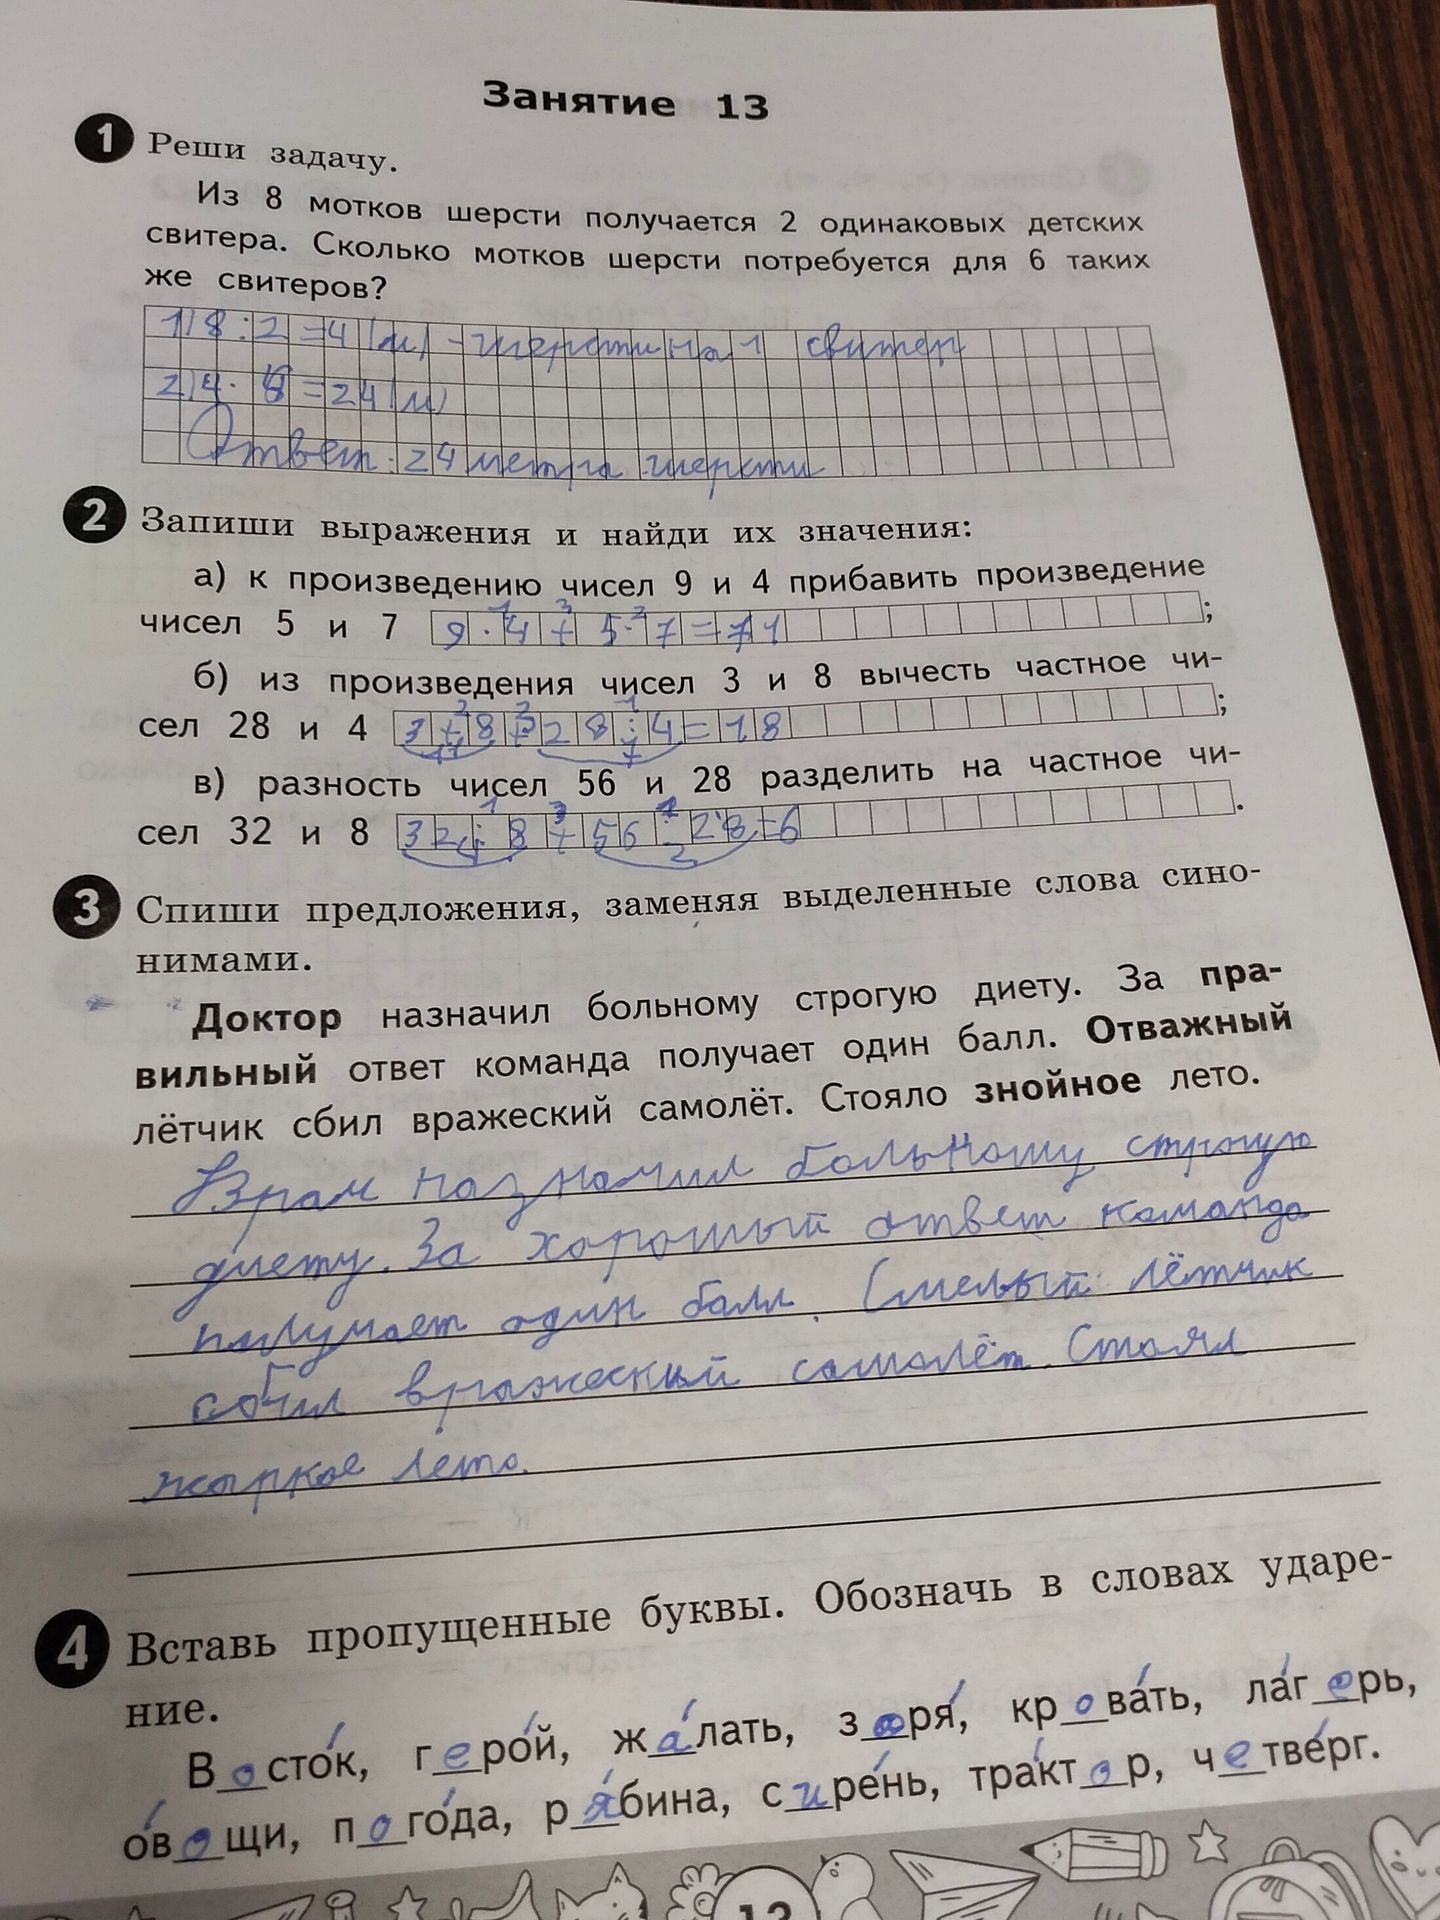 Занятие 13
1 Реши задачу.
Из 8 мотков шерсти получается 2 одинаковых детских
свитера. Сколько мотков шерсти потребуется для 6 таких
же свитеров?
1) 8 : 2 = 4 (м) - шерсти на 1 свитер
2) 4 · 6 = 24 (м)
Ответ: 24 метра шерсти
2 Запиши выражения и найди их значения:
а) к произведению чисел 9 и 4 прибавить произведение
чисел 5 и 7 9 · 4 + 5 · 7 = 71 ;
б) из произведения чисел 3 и 8 вычесть частное чи-
сел 28 и 4 3 + 8 + 28 : 4 = 18 ;
в) разность чисел 56 и 28 разделить на частное чи-
сел 32 и 8 32 : 8 + 56 : 28 = 6 .
3 Спиши предложения, заменяя выделенные слова сино-
нимами.
Доктор назначил больному строгую диету. За пра-
вильный ответ команда получает один балл. Отважный
лётчик сбил вражеский самолёт. Стояло знойное лето.
Врач назначил больному строгую
диету. За хороший ответ команда
получает один балл. Смелый лётчик
сбил вражеский самолёт. Стоял
жыркое лето.
4 Вставь пропущенные буквы. Обозначь в словах ударе-
ние.
Восто́к, геро́й, жа́лать, заря́, крова́ть, ла́герь,
о́вощи, пого́да, ря́бина, сире́нь, тра́ктор, четве́рг.